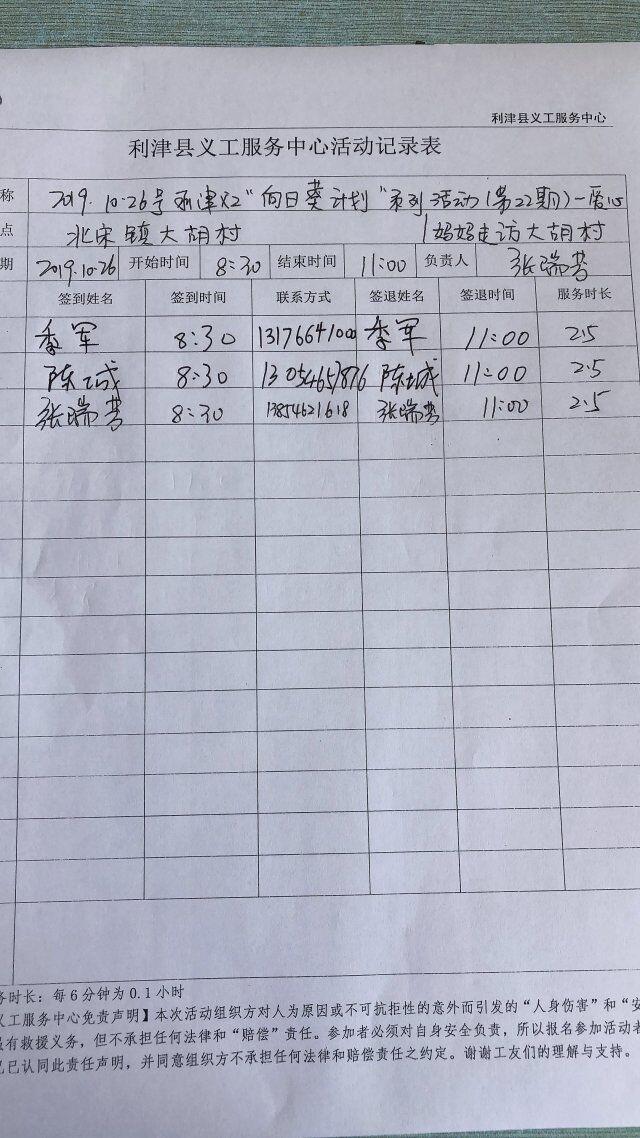 利津县义工服务中心
利津县义工服务中心活动记录表
称 2019.10.26号利津义工"向日葵计划"系列活动(第22期)一爱心
点 北宋镇大胡村 妈妈走访大胡村
期 2019.10.26 开始时间 8:30 结束时间 11:00 负责人 张瑞芳
签到姓名 签到时间 联系方式 签退姓名 签退时间 服务时长
季军 8:30 13176641000 季军 11:00 2.5
陈城 8:30 13054657876 陈城 11:00 2.5
张瑞芳 8:30 13854621618 张瑞芳 11:00 2.5
务时长：每6分钟为0.1小时
义工服务中心免责声明】本次活动组织方对人为原因或不可抗拒性的意外而引发的“人身伤害”和“安
有救援义务，但不承担任何法律和“赔偿”责任。参加者必须对自身安全负责，所以报名参加活动者
已认同此责任声明，并同意组织方不承担任何法律和赔偿责任之约定。谢谢工友们的理解与支持。